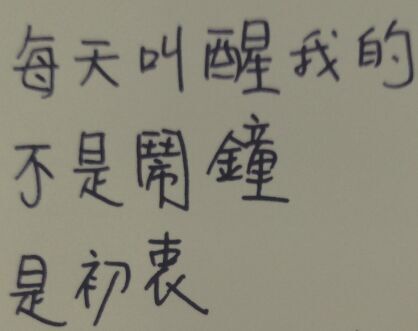 每天叫醒我的
不是鬧鐘
是初衷